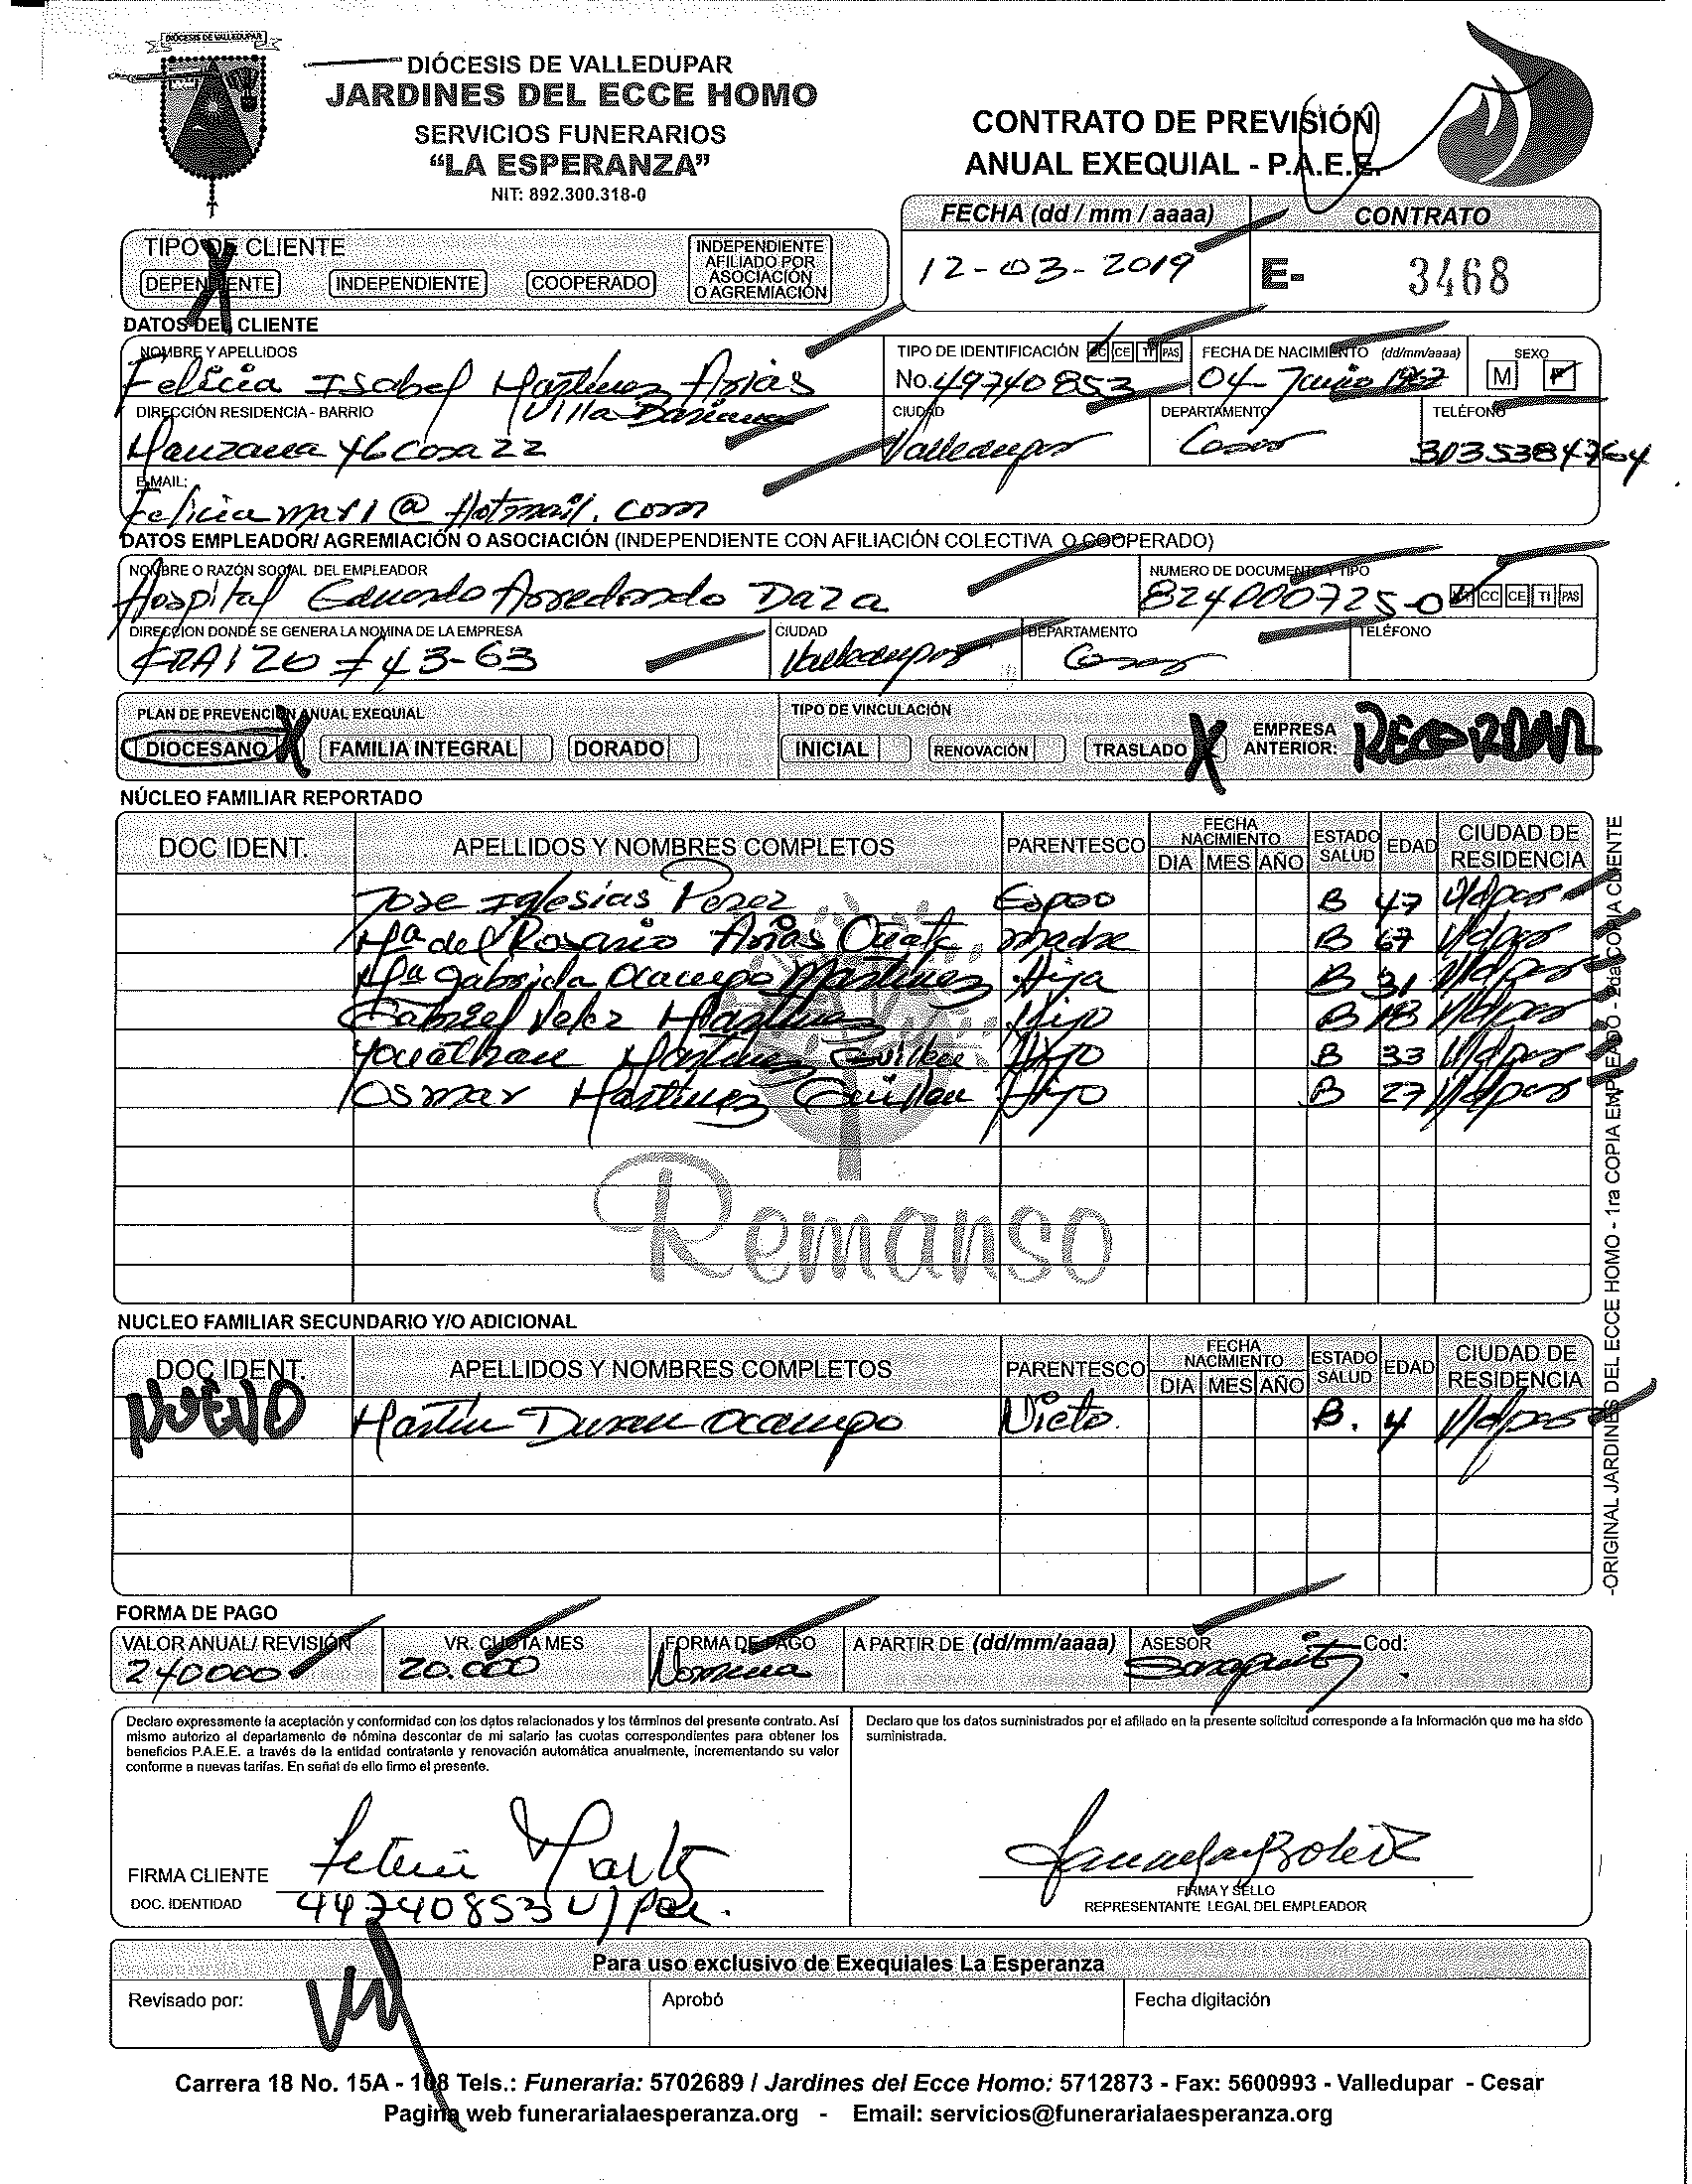 DIÓCESIS DE VALLEDUPAR
DIÓCESIS DE VALLEDUPAR
JARDINES DEL ECCE HOMO
SERVICIOS FUNERARIOS
“LA ESPERANZA”
NIT: 892.300.318-0
CONTRATO DE PREVISIÓN
ANUAL EXEQUIAL - P.A.E.E.
FECHA (dd / mm / aaaa) CONTRATO
12-03-2019 E- 3468
TIPO DE CLIENTE
DEPENDIENTE INDEPENDIENTE COOPERADO INDEPENDIENTE AFILIADO POR ASOCIACIÓN O AGREMIACIÓN
DATOS DEL CLIENTE
NOMBRE Y APELLIDOS TIPO DE IDENTIFICACIÓN CC CE TI PAS FECHA DE NACIMIENTO (dd/mm/aaaa) SEXO
Felicia Isabel Martinez Arias No. 49740853 04-Junio 1967 M F
DIRECCIÓN RESIDENCIA - BARRIO Villa Dariana CIUDAD DEPARTAMENTO TELÉFONO
Manzana 46 Casa 22 Valledupar Cesar 3135384764
E-MAIL:
Feliciamar1@Hotmail.com
DATOS EMPLEADOR/ AGREMIACIÓN O ASOCIACIÓN (INDEPENDIENTE CON AFILIACIÓN COLECTIVA O COOPERADO)
NOMBRE O RAZÓN SOCIAL DEL EMPLEADOR NUMERO DE DOCUMENTO Y TIPO
Hospital Eduardo Arredondo Daza 824000725-0 CC CE TI PAS
DIRECCIÓN DONDE SE GENERA LA NOMINA DE LA EMPRESA CIUDAD DEPARTAMENTO TELÉFONO
Valledupar Cesar
PLAN DE PREVENCIÓN ANUAL EXEQUIAL TIPO DE VINCULACIÓN
DIOCESANO X FAMILIA INTEGRAL DORADO INICIAL RENOVACIÓN TRASLADO X EMPRESA ANTERIOR: RECORDAR
NÚCLEO FAMILIAR REPORTADO
DOC IDENT. APELLIDOS Y NOMBRES COMPLETOS PARENTESCO FECHA NACIMIENTO DIA MES AÑO ESTADO SALUD EDAD CIUDAD DE RESIDENCIA
Jose Iglesias Perez Espoo B 47 V/dpar
Ma del Rosario Arias Oñate madre B 67 V/dpar
Ma Gabriela Ocampo Martinez Hija B 31 V/dpar
Gabriel Velez Martinez Hijo B 18 V/dpar
Yonathan Martinez Guillen Hijo B 33 V/dpar
Osmar Martinez Guillen Hijo B 27 V/dpar
Remanso
NUCLEO FAMILIAR SECUNDARIO Y/O ADICIONAL
DOC IDENT. APELLIDOS Y NOMBRES COMPLETOS PARENTESCO FECHA NACIMIENTO DIA MES AÑO ESTADO SALUD EDAD CIUDAD DE RESIDENCIA
NUEVO Martin Duran Ocampo Nieto. B. 4 V/dpar
-ORIGINAL JARDINES DEL ECCE HOMO - 1ra COPIA EMPLEADO - 2da COPIA CLIENTE
FORMA DE PAGO
VALOR ANUAL/ REVISIÓN VR. CUOTA MES FORMA DE PAGO A PARTIR DE (dd/mm/aaaa) ASESOR Cod:
240000 20.000 Nomina
Declaro expresamente la aceptación y conformidad con los datos relacionados y los términos del presente contrato. Así
mismo autorizo al departamento de nómina descontar de mi salario las cuotas correspondientes para obtener los
beneficios P.A.E.E. a través de la entidad contratante y renovación automática anualmente, incrementando su valor
conforme a nuevas tarifas. En señal de ello firmo el presente.
Declaro que los datos suministrados por el afiliado en la presente solicitud corresponde a la información que me ha sido
suministrada.
FIRMA CLIENTE
DOC. IDENTIDAD 49740853 V/par.
FIRMA Y SELLO
REPRESENTANTE LEGAL DEL EMPLEADOR
Para uso exclusivo de Exequiales La Esperanza
Revisado por: Aprobó Fecha digitación
Carrera 18 No. 15A - 108 Tels.: Funeraria: 5702689 / Jardines del Ecce Homo: 5712873 - Fax: 5600993 - Valledupar - Cesar
Pagina web funerarialaesperanza.org - Email: servicios@funerarialaesperanza.org